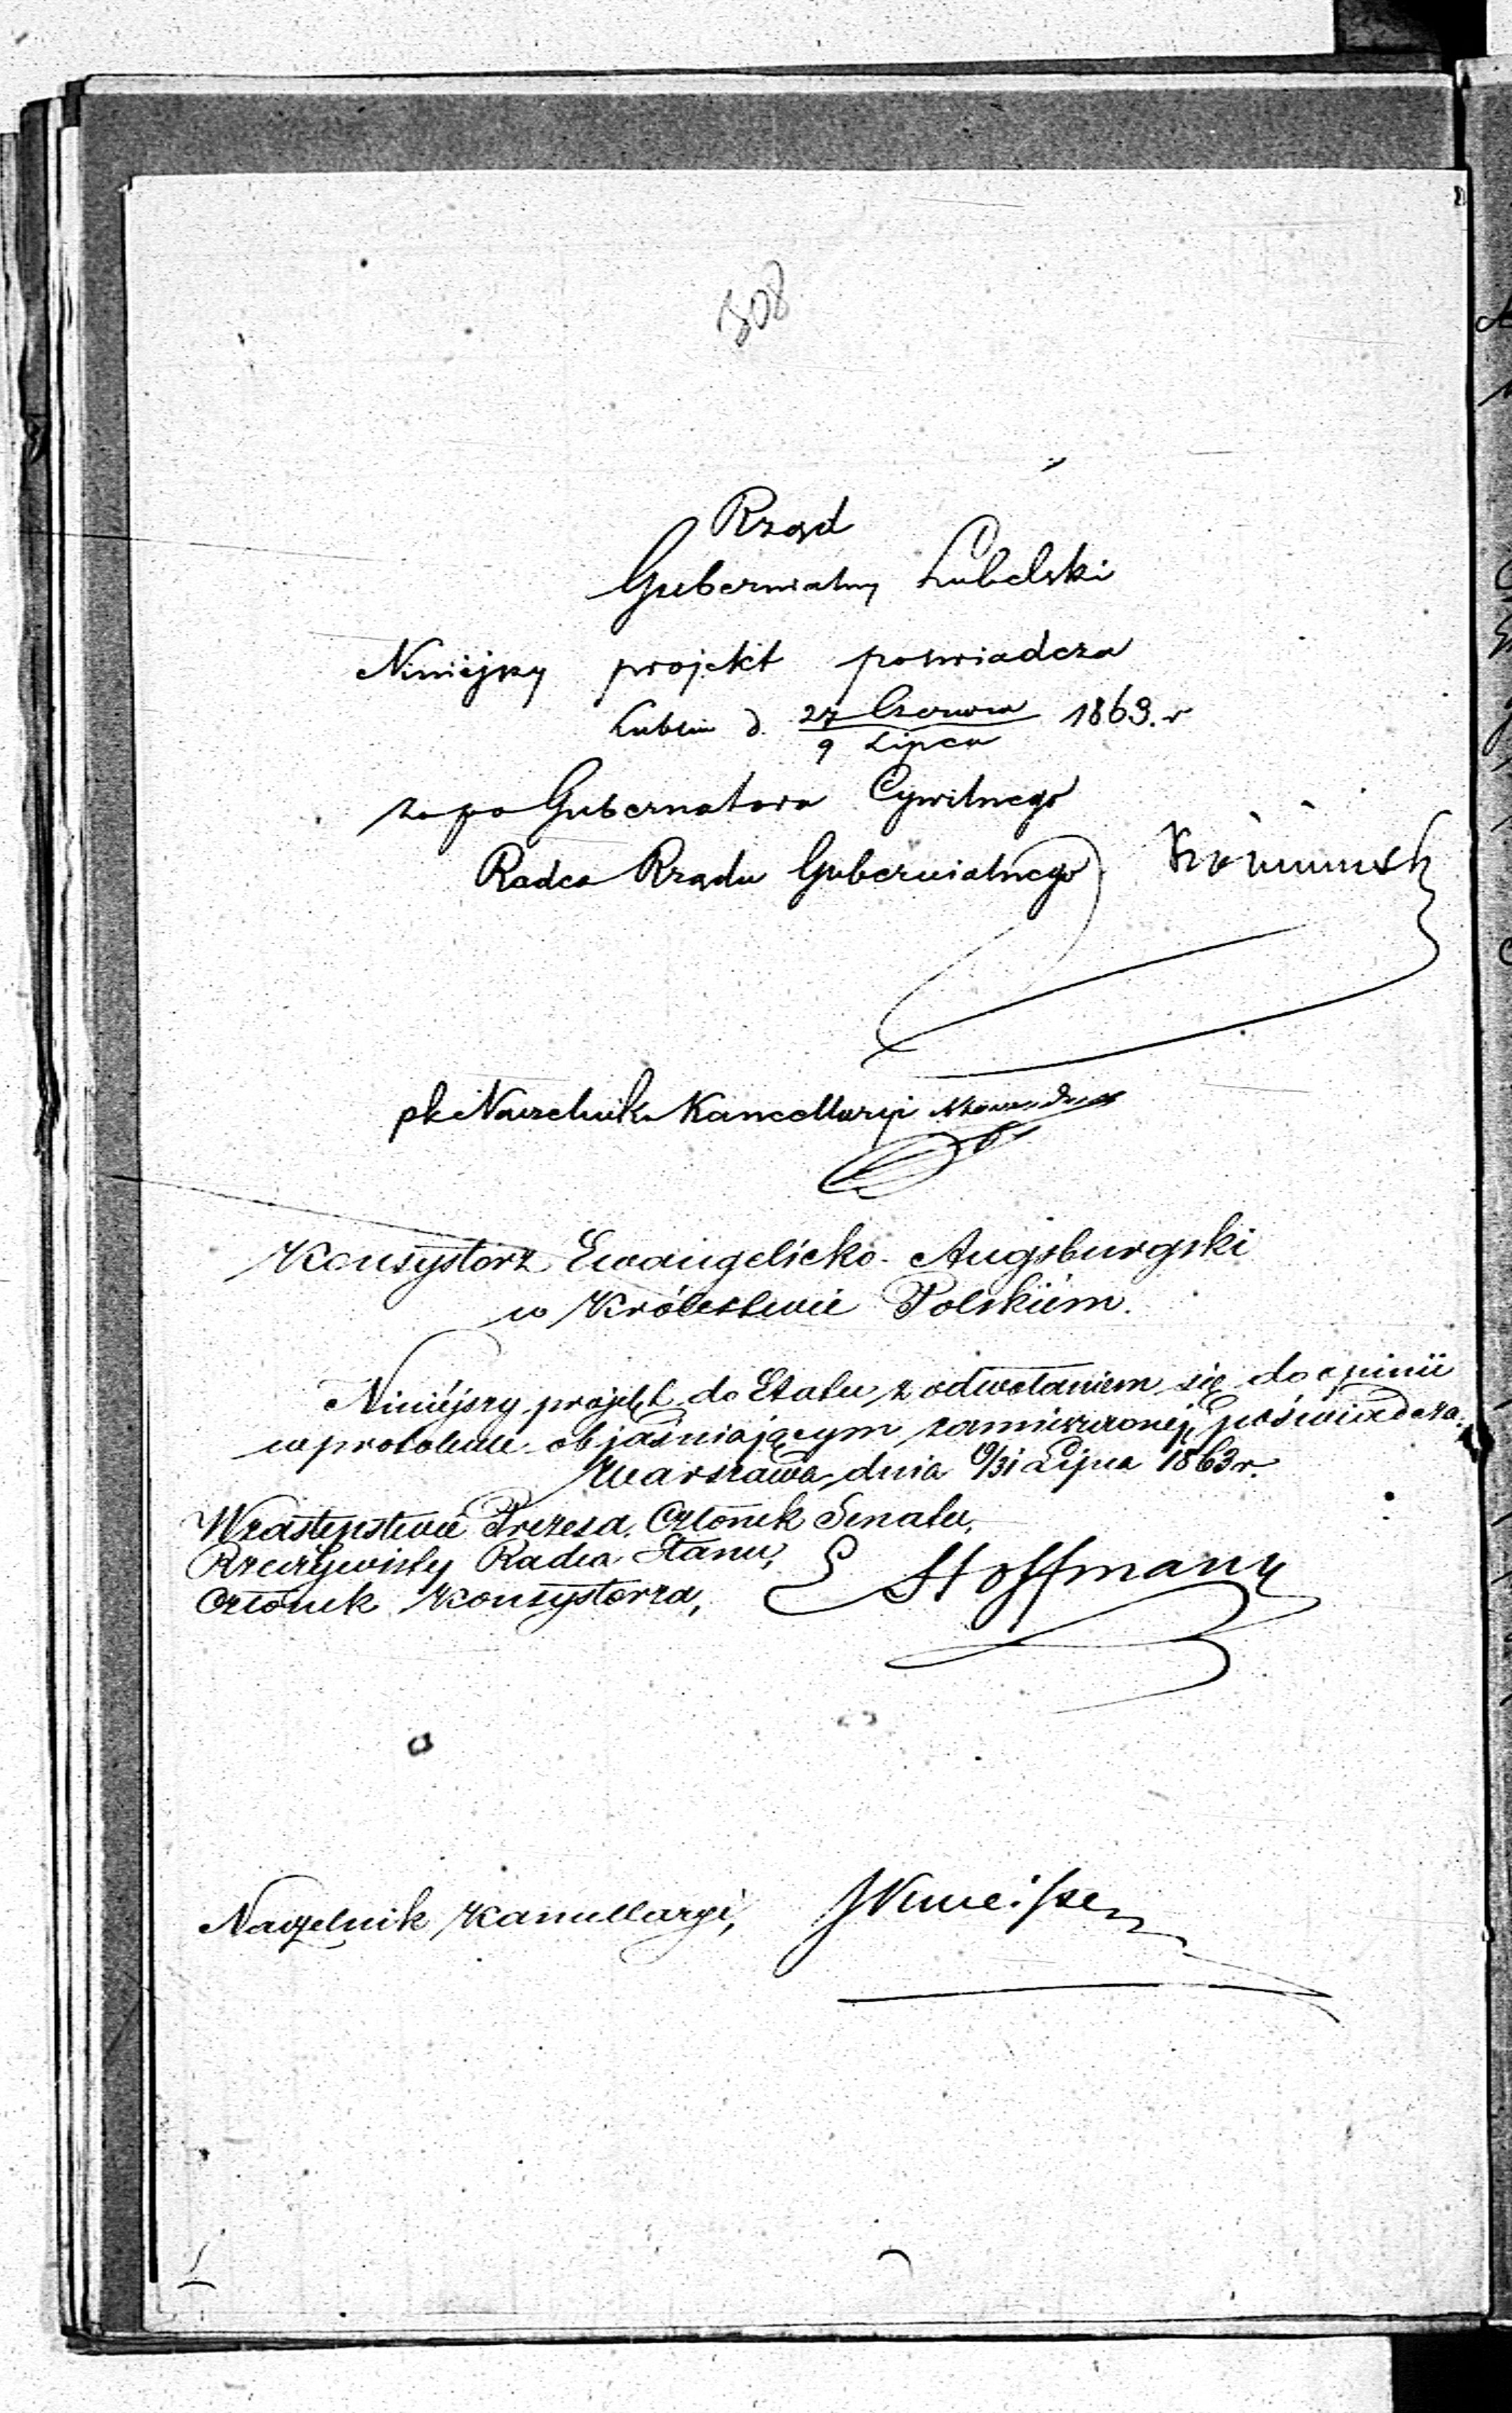 308
Rząd
Gubernialny Lubelski
Niniejszy projekt poświadcza
Lublin d. 27 Czerwca 1863. r
9 Lipca
za po Gubernatora Cywilnego
Radca Rządu Gubernialnego
pk Naczelnika Kancellaryi
Konsystorz Ewangelicko-Augsburgski
w Królestwie Polskiem.
Niniejszy projekt do Etatu z odwołaniem się do opinii
w protokule objaśniającym zamieszczonej, poświadcza.
Warszawa, dnia 19/31 Lipca 1863 r.
W zastępstwie Prezesa, Członek Senatu,
Rzeczywisty Radca Stanu,
Członek Konsystorza, E Hoffmann
Naczelnik Kancellaryi,